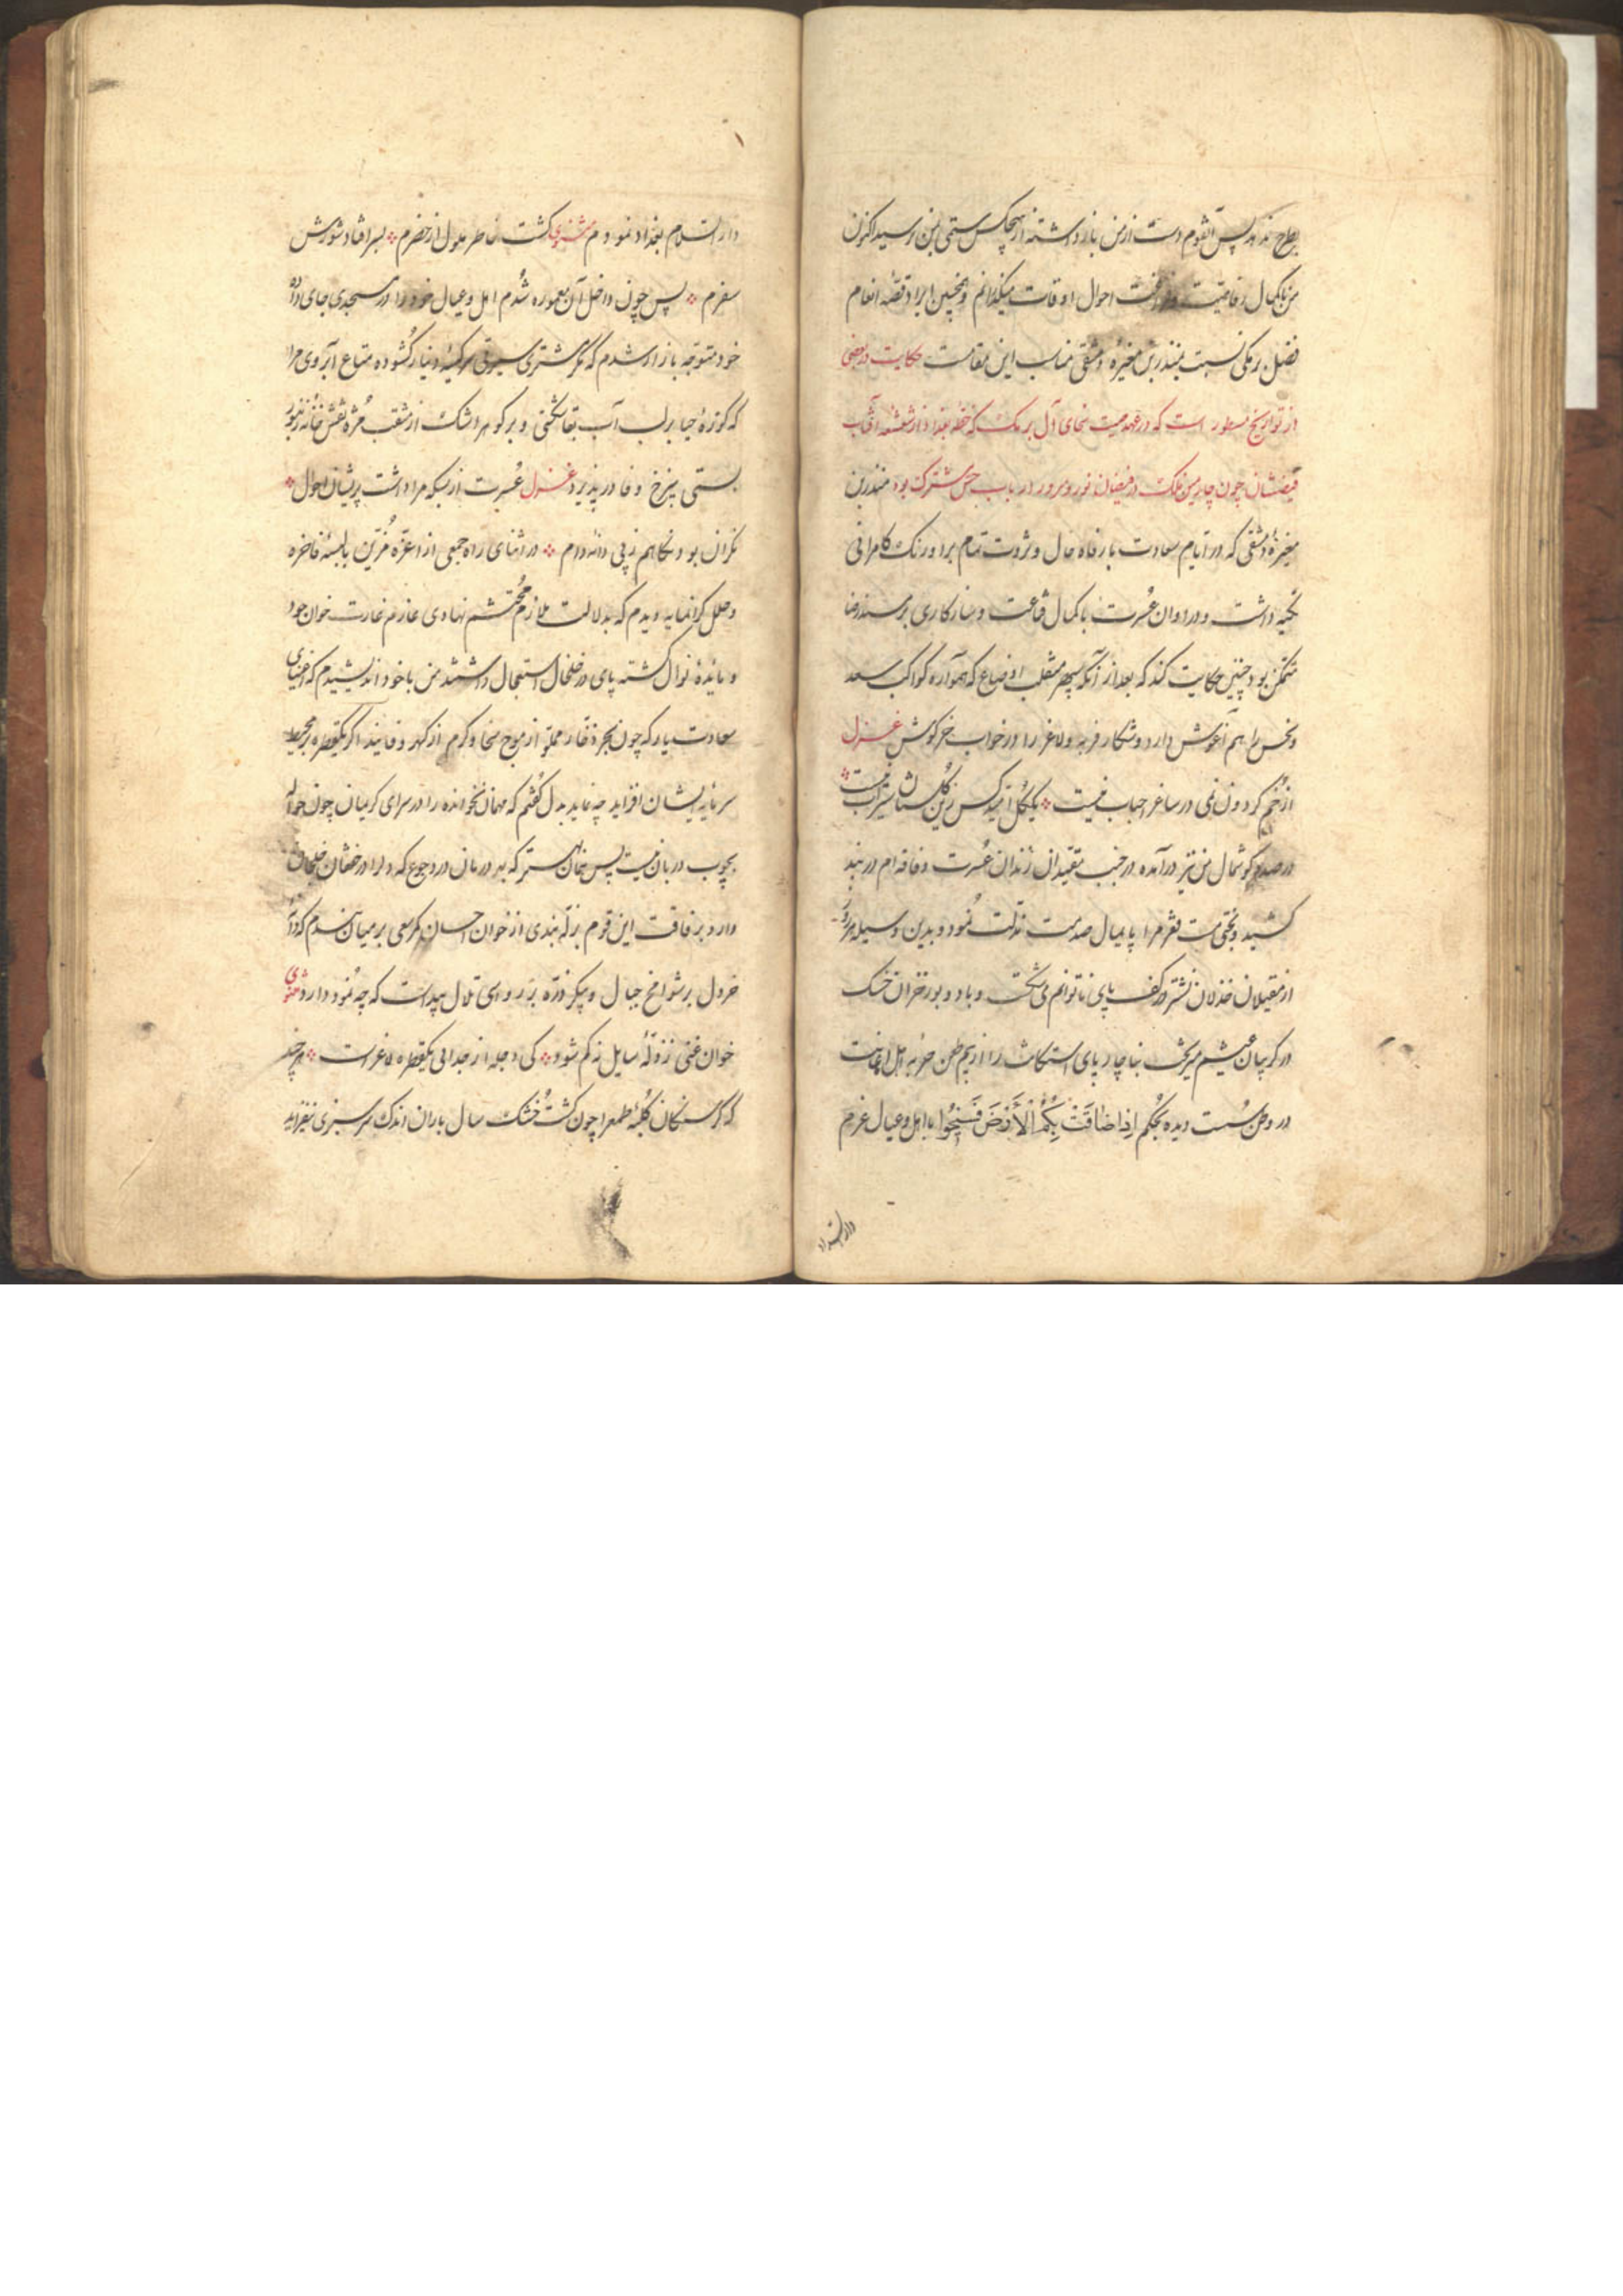 بطرح ندهد پس آنقوم دست از من باز داشته از هیچکس ستمی بمن نرسید اکنون
من بکمال رفاهیت و فراغت احوال اوقات میگذرانم و همچنین ایراد قصه انعام
فضل برمکی نسبت بمنذر بن مغیره دمشقی مناسب این مقامست حکایت در بعضی
از تواریخ مسطور است که در عهد میمنت سخای آل برمک که خطه بغداد از شعشعه آفتاب
فیضشان چون چارمین فلک در فیضان نور و سرور ارباب حس مشترک بود منذر بن
مغیرهٔ دمشقی که در ایام سعادت با رفاه حال و ثروت تمام بر اورنک کامرانی
تکیه داشت و در اوان عُسرت با کمال قناعت و سازکاری بر مسند رضا
متمکن بود چنین حکایت کند که بعد از آنکه سپهر منقلب اوضاع که همواره کواکب سعد
و نحس را هم آغوش دارد و شکار فربه و لاغر را در خواب خرکوش غزل
از خُم کردون نمی در ساغر احباب نیست ❖ یکگل امید کس زین گلستان سیراب نیست ❖
در صدد کوشمال من نیز درآمده در جنب مقیدان زندان عُسرت و فاقه ام در بند
کشید و بختی مست فقر مرا پایمال صدمت مذلت نمود و بدین وسیله هر روز
از مغیلان خذلان نشتر در کف پای ناتوانم می شکست و باد و بور خزان خشک
در کریبان عیشم میریخت بناچار پای استکانت را از بیم طعن حونه اهل اعانت
در وطن سُست دیده بحُکم اِذا ضٰاقَتْ بِکُمُ الْأَرْضَ فَسِیحُوا با اهل و عیال عزم
دار السلام
دار السّلام بغداد نمودم مثنوی کشت خاطر ملول از حضرم ❖ بسر افتاد شورش
سفرم ❖ پس چون داخل آن معموره شُدم اهل و عیال خود را در مسجدی جای داده
خود متوجه بازار شدم که مکر مشتری سیرتی سر کیسه دینار کشوده متاع آبروی مرا
که کوزهٔ حیا بر لب آب بقا شکستی و بر کوهر اشک از مثقب مُژه نقش خانه زنبور
بستی بنرخ وفا در پذیرد غزل عُسرت از بسکه مرا داشت پریشان احوال ❖
نکران بود نکاهم ز پی دانه و دام ❖ در اثنای راه جمعی از اعزّه مُزیّن بالبسهٔ فاخره
و حلل کرانمایه دیدم که بدلالت ملازم مُحتشم نهادی عازم غارت خوان جود
و مایدهٔ نوال کشته پای در خلخال استعجال داشتند من با خود اندیشیدم که اغنیای
سعادت یار که چون بحر ذخار مملوّ از موج سخا و کرم از کهر وفایند اگر یکقطره بر محیط
سرمایه ایشان افزاید چه نماید بدل کُفتم که مهمان نخوانده را در سرای کریمان چون حواله
بچوب دربان نیست پس همان بهتر که بهر درمان درد جوع که دلرا در خفقان خلجان
دارد برفاقت این قوم بزلّه بندی از خوان احسان کمر سعی بر میان بندم که دانهٔ
خردل بر شوامخ جبال و پیکر ذرّه بر رواسی تلال پیداست که چه نمود دارد مثنوی
خوان غنی ز زلّهٔ سایل نه کم شود ❖ کی دجله از جدایی یکقطره لاغر است ❖ هر چند
که کرسنکان کلبهٔ طمعرا چون کشت خُشک سال باران اندک سرسبزی نیفزاید